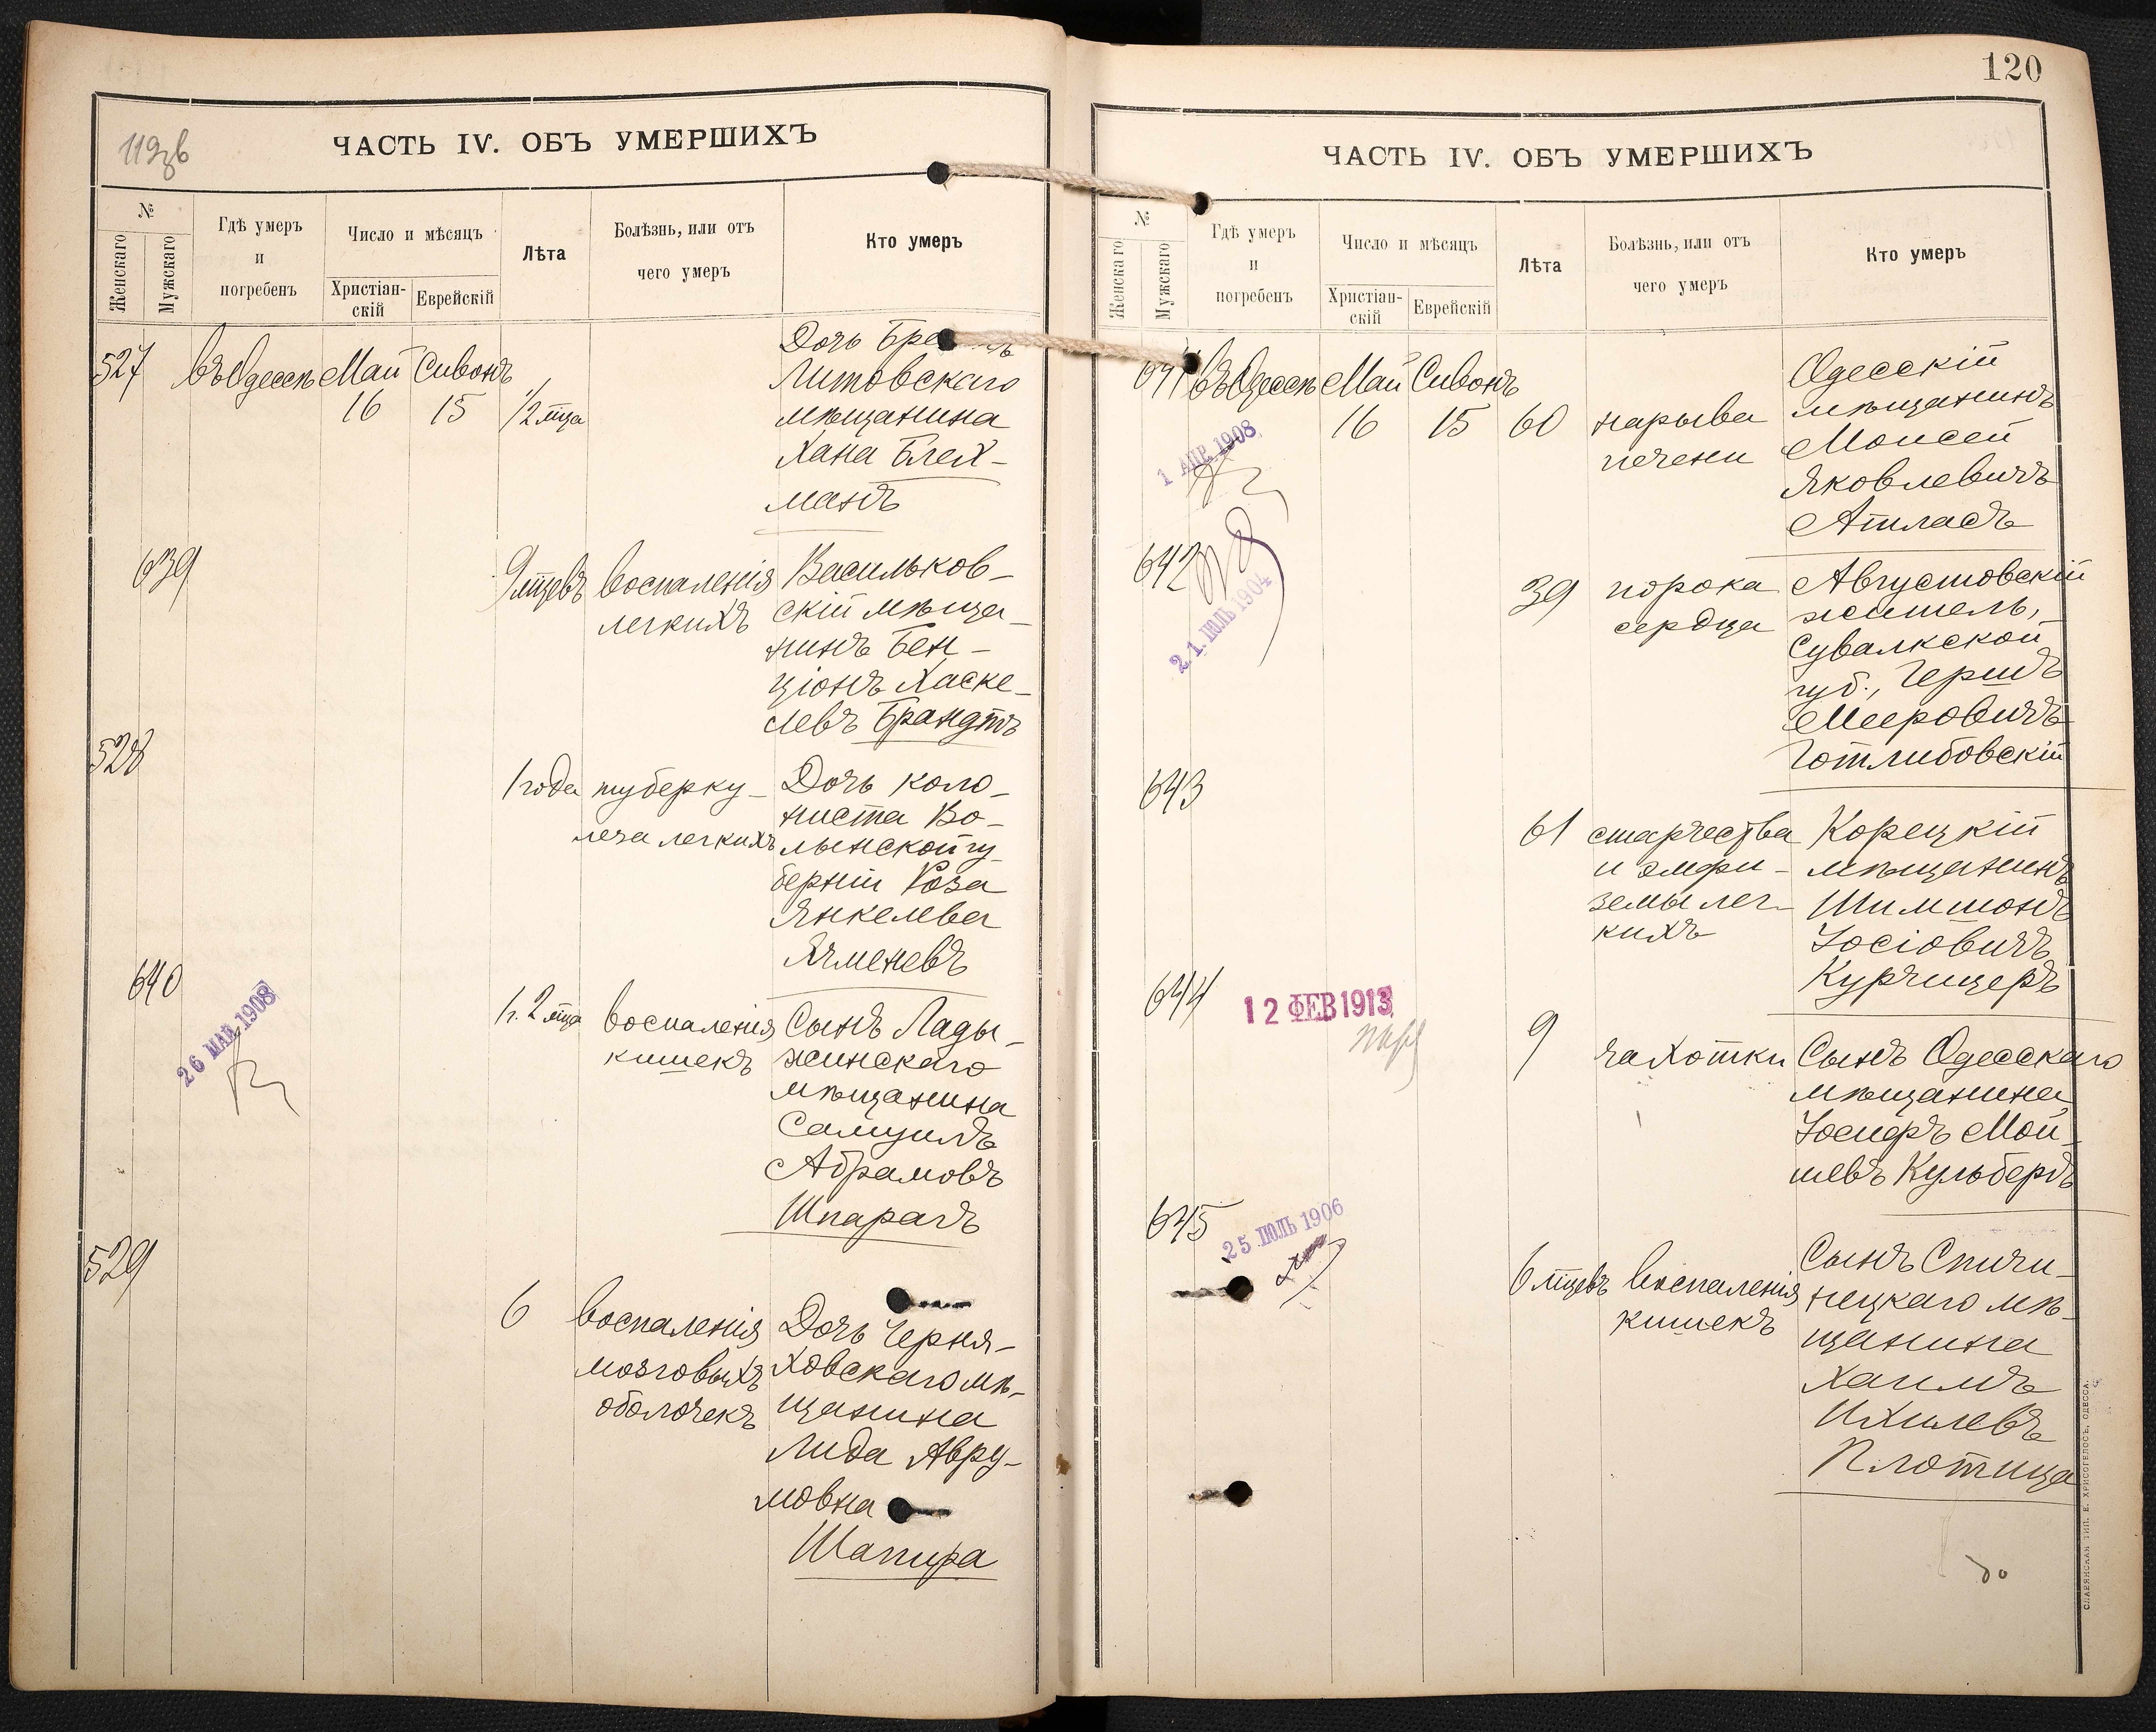 119зв
ЧАСТЬ IV. ОБЪ УМЕРШИХЪ
№
Женскаго
Мужскаго
Гдѣ умеръ
и
погребенъ
Число и мѣсяцъ
Христіан-
скій
Еврейскій
Лѣта
Болѣзнь, или отъ
чего умеръ
Кто умеръ
527
въ Одессѣ
Май
16
Сивонъ
15
1/2 мца
Дочь
Литовскаго
мѣщанина
Хана Блех-
манъ
639
9 мцевъ
воспаленія
легкихъ
Васильков-
скій мѣща-
нинъ Бен-
ціонъ Хаске-
левъ Брандтъ
528
1 года
туберку-
леза легкихъ
Дочь коло-
ниста Во-
лынской гу-
берніи Роза
Янкелева
Ячменевъ
640
26 МАЙ 1908
1 г. 2 мца
воспаленія
кишекъ
Сынъ Лады-
жинскаго
мѣщанина
Самуилъ
Абрамовъ
Шпарагъ
529
6
воспаленія
мозговыхъ
оболочекъ
Дочь Черня-
ховскаго мѣ-
щанина
Либа Авру-
мовна
Шапира
120
ЧАСТЬ IV. ОБЪ УМЕРШИХЪ
№
Женскаго
Мужскаго
Гдѣ умеръ
и
погребенъ
Число и мѣсяцъ
Христіан-
скій
Еврейскій
Лѣта
Болѣзнь, или отъ
чего умеръ
Кто умеръ
641
въ Одессѣ
Май
16
Сивонъ
15
1 АПР. 1908
60
нарыва
печени
Одесскій
мѣщанинъ
Моисей
Яковлевичъ
Атласъ
642
21. ІЮЛЬ 1904
39
порока
сердца
Августовскій
житель,
Сувалкской
губ., Гершъ
Мееровичъ
Готлибовскій
643
61
старчества
и эмфи-
земы лег-
кихъ
Корецкій
мѣщанинъ
Шимшонъ
Іосіовичъ
Курчицеръ
644
12 ФЕВ 1913
9
чахотки
Сынъ Одесскаго
мѣщанина
Іосифъ Мой-
шевъ Кульбергъ
645
25 ІЮЛЬ 1906
6 мцевъ
воспаленія
кишекъ
Сынъ Спичи-
нецкаго мѣ-
щанина
Хаимъ
Ихилевъ
Плотица
СЛАВЯНСКАЯ ТИП. Е. ХРИСОГЕЛОСЪ, ОДЕССА.